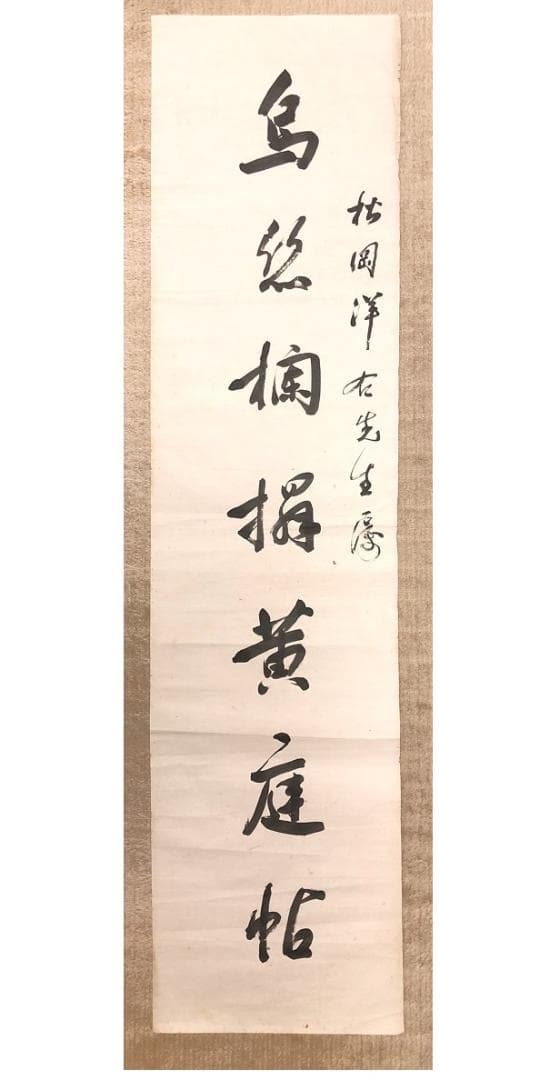 松岡洋右先生屬
烏絲欄搨黄庭帖